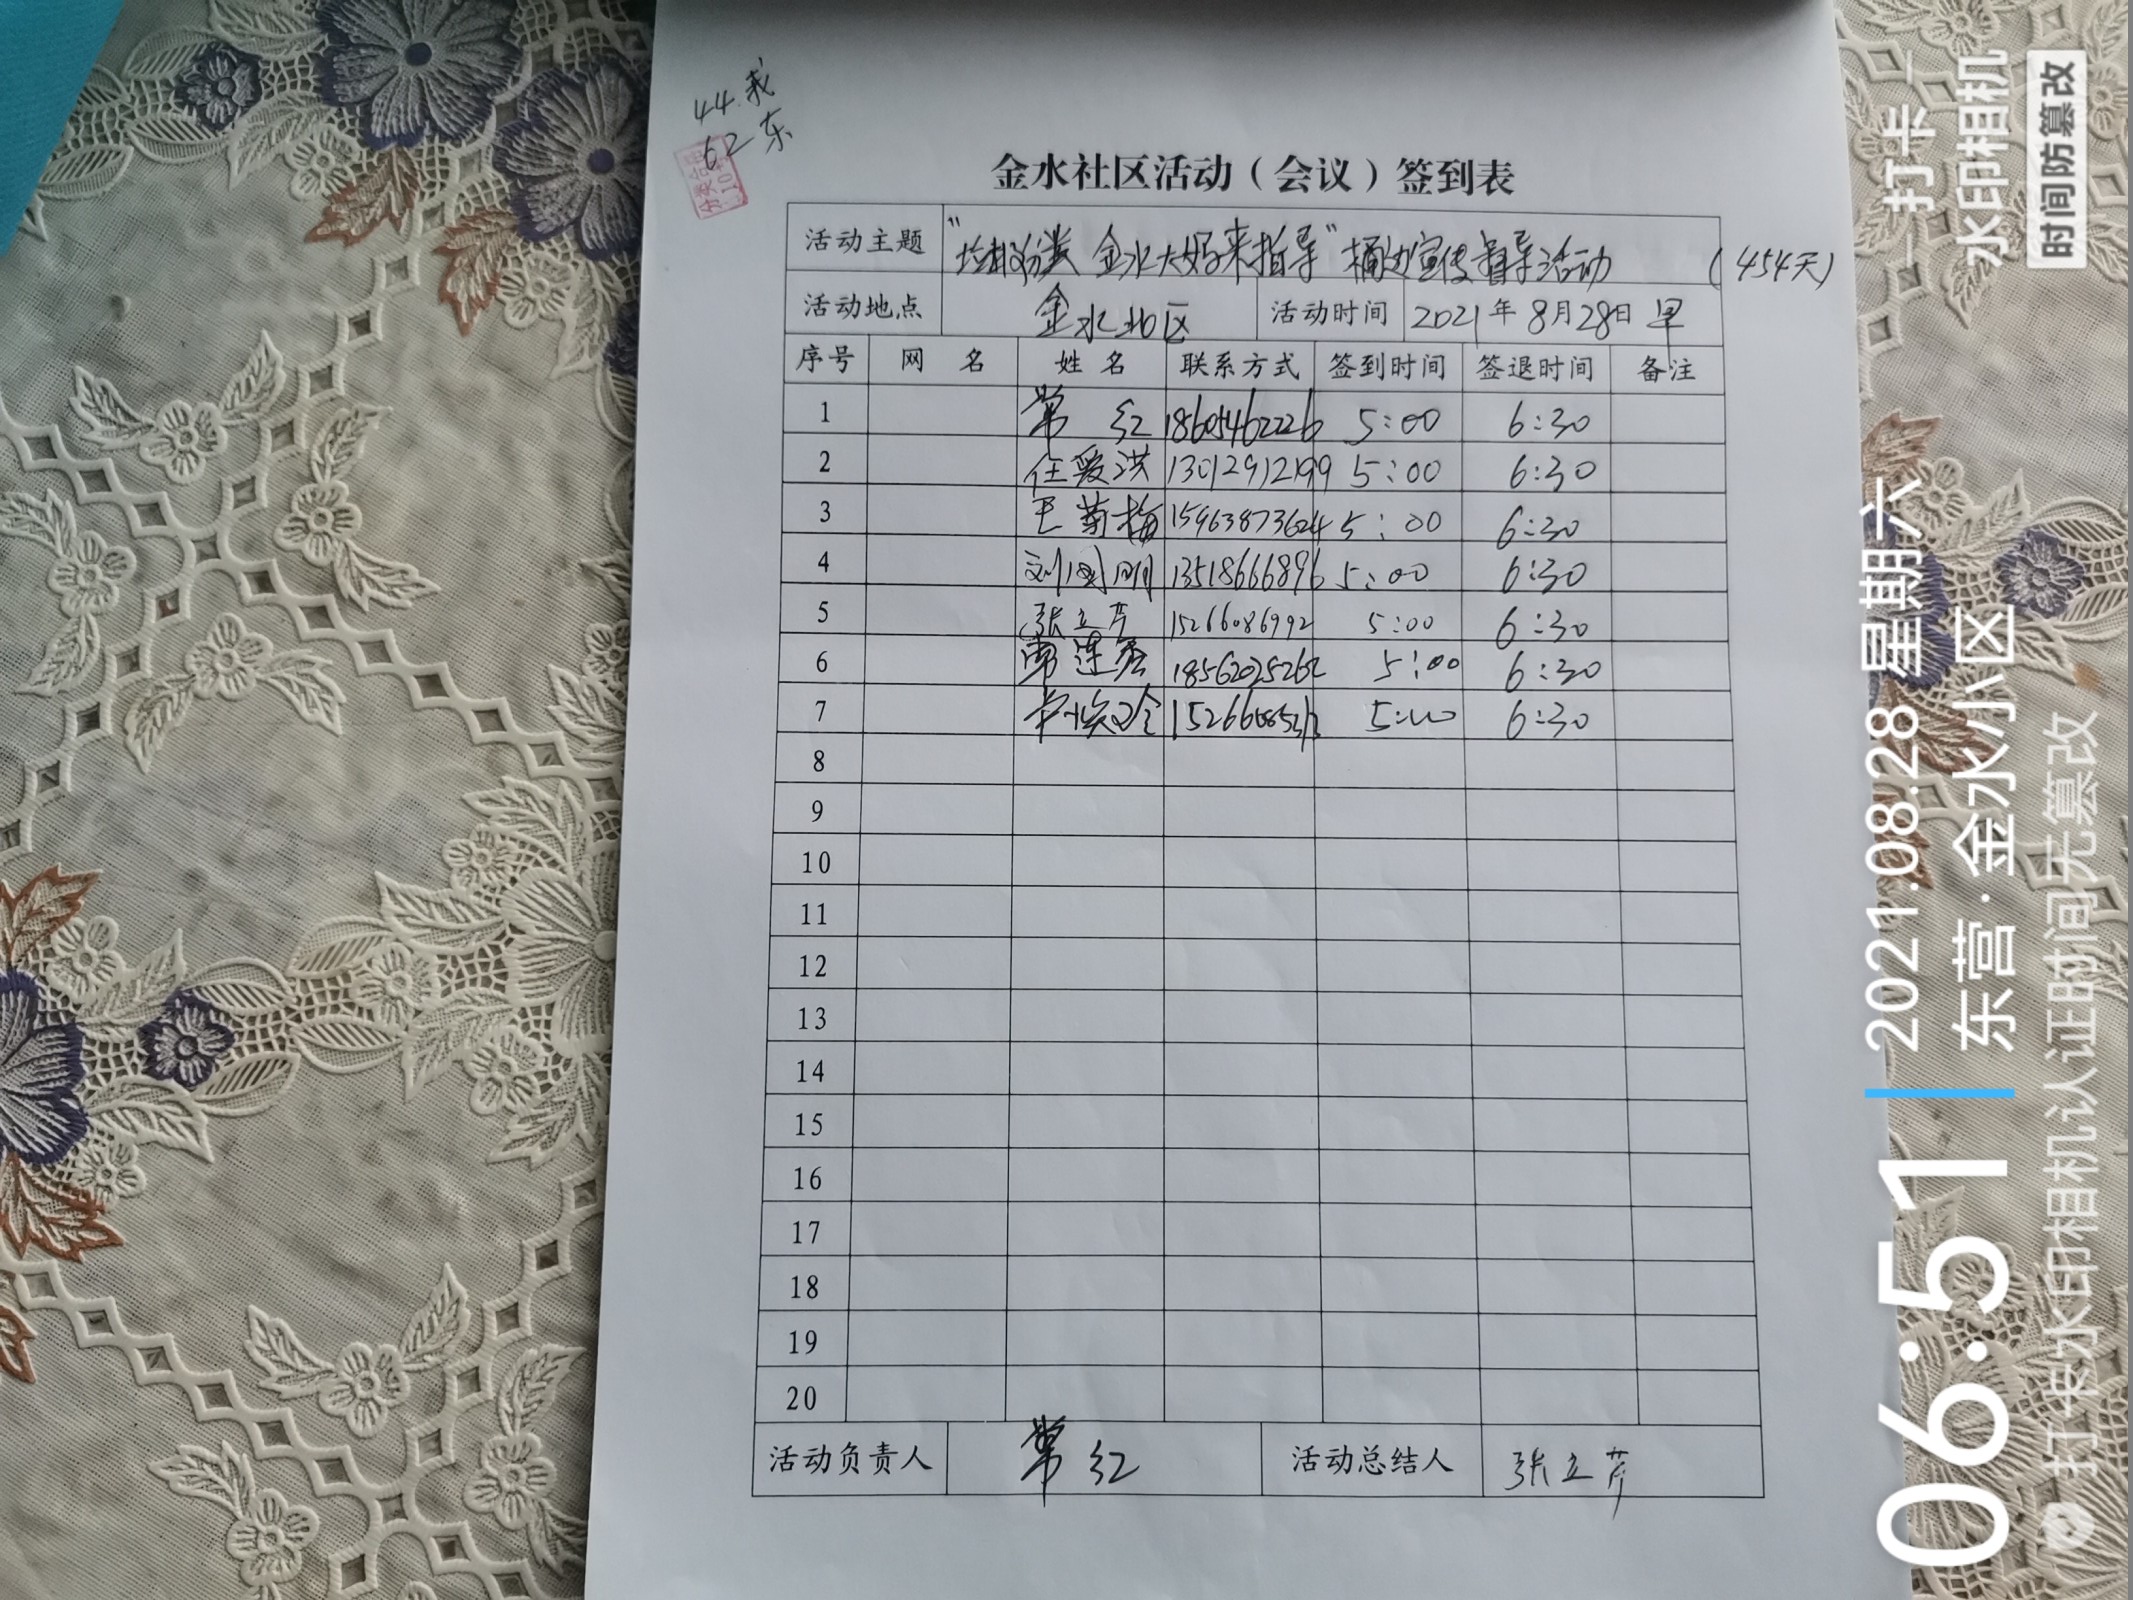 44. 我
62 东
金水社区活动（会议）签到表
活动主题 "垃圾分类 金水大妈来指导" 桶边宣传督导活动 (454天)
活动地点 金水北区 活动时间 2021年8月28日 早
序号 网 名 姓 名 联系方式 签到时间 签退时间 备注
1 常 红 18605462226 5:00 6:30
2 任爱洪 13012912199 5:00 6:30
3 王菊梅 15963873624 5:00 6:30
4 刘国明 13518666896 5:00 6:30
5 张立芹 15266086992 5:00 6:30
6 常连 18562025262 5:00 6:30
7 5:00 6:30
8
9
10
11
12
13
14
15
16
17
18
19
20
活动负责人 常红 活动总结人 张立芹
06:51
2021.08.28 星期六
东营·金水小区
打卡
水印相机
时间防篡改
打卡水印相机认证时间无篡改